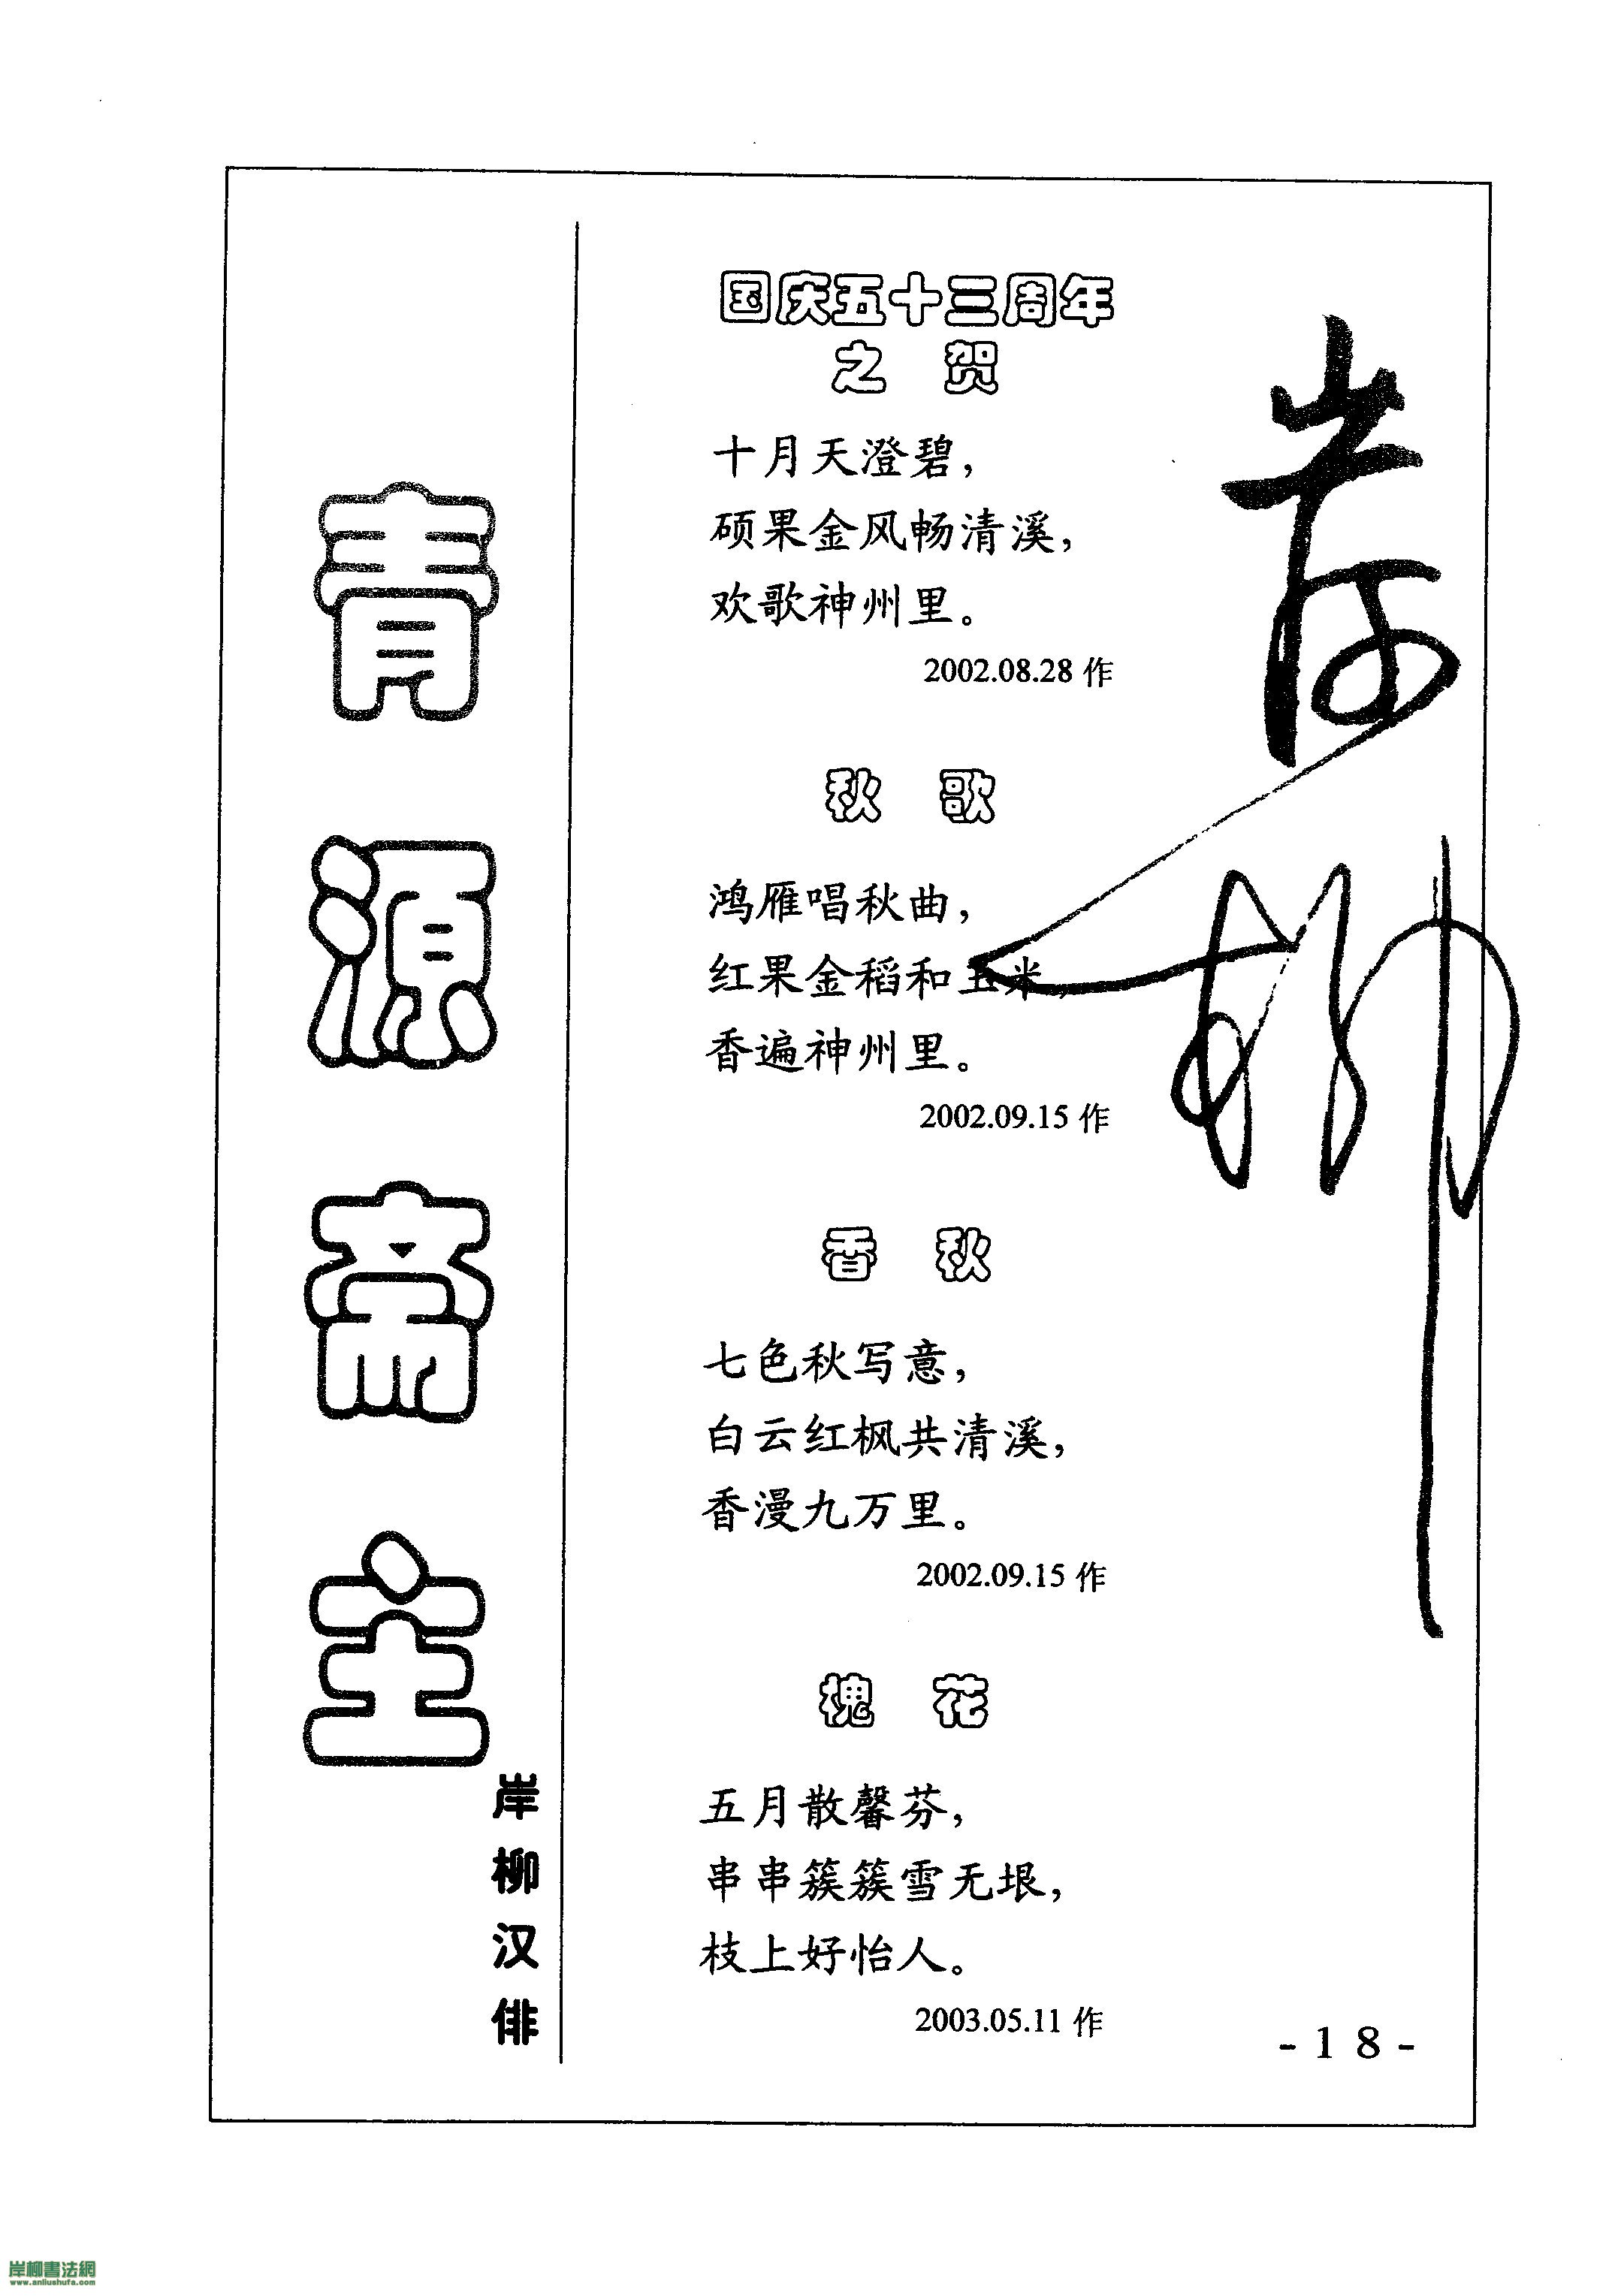 青源斋主
岸柳汉俳
国庆五十三周年
之贺
十月天澄碧，
硕果金风畅清溪，
欢歌神州里。
2002.08.28 作
秋歌
鸿雁唱秋曲，
红果金稻和玉米，
香遍神州里。
2002.09.15 作
香秋
七色秋写意，
白云红枫共清溪，
香漫九万里。
2002.09.15 作
槐花
五月散馨芬，
串串簇簇雪无垠，
枝上好怡人。
2003.05.11 作
岸柳
-18-
岸柳書法網
www.anliushufa.com